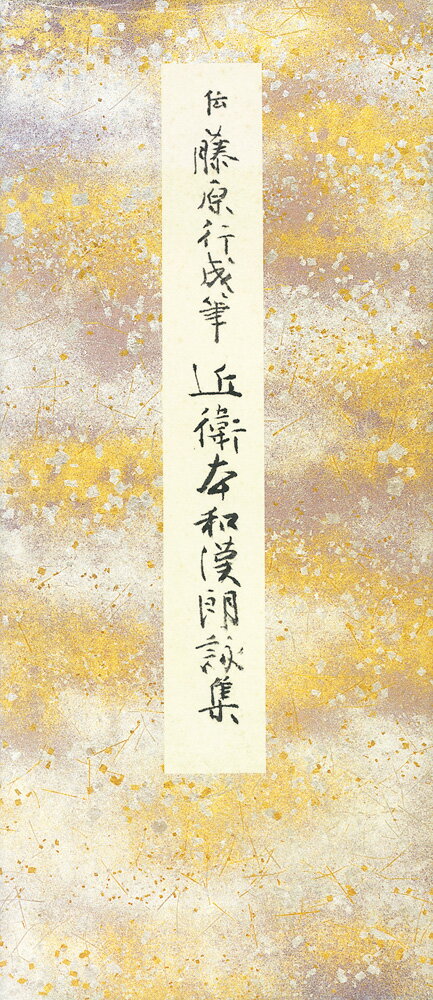 伝藤原行成筆 近衛本和漢朗詠集